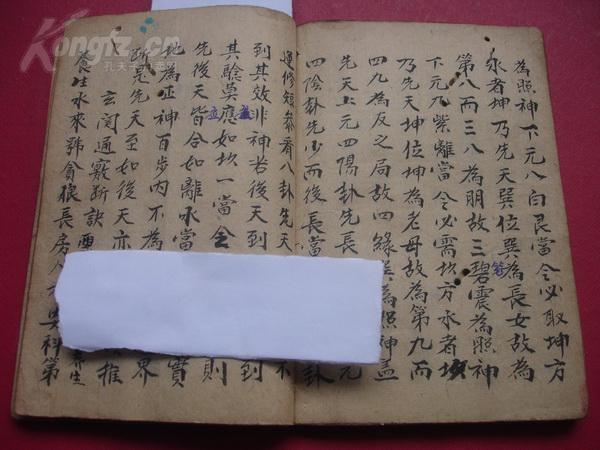 為照神下元八白艮當令必取坤方
水者坤乃先天巽位巽為長女故為
第八而三八為朋故三碧震為照神
下元九紫離當令必需坎方水者坎
乃先天坤位坤為老母故為第九而
四九為友之局故四綠巽為照神蓋
先天上元四陽卦先長
元
四陰卦先少而後長當
卦
運修短參看八卦先天
不
到其效非神若後天到
到
其驗莫應如坎一當令
則
先後天皆合如離水當
實
地為正神百步內不為
界
斷是先天至如後天亦
推
玄関通竅斷訣
養生水來號貪狼長房
第
Kongfz.cn
孔夫子